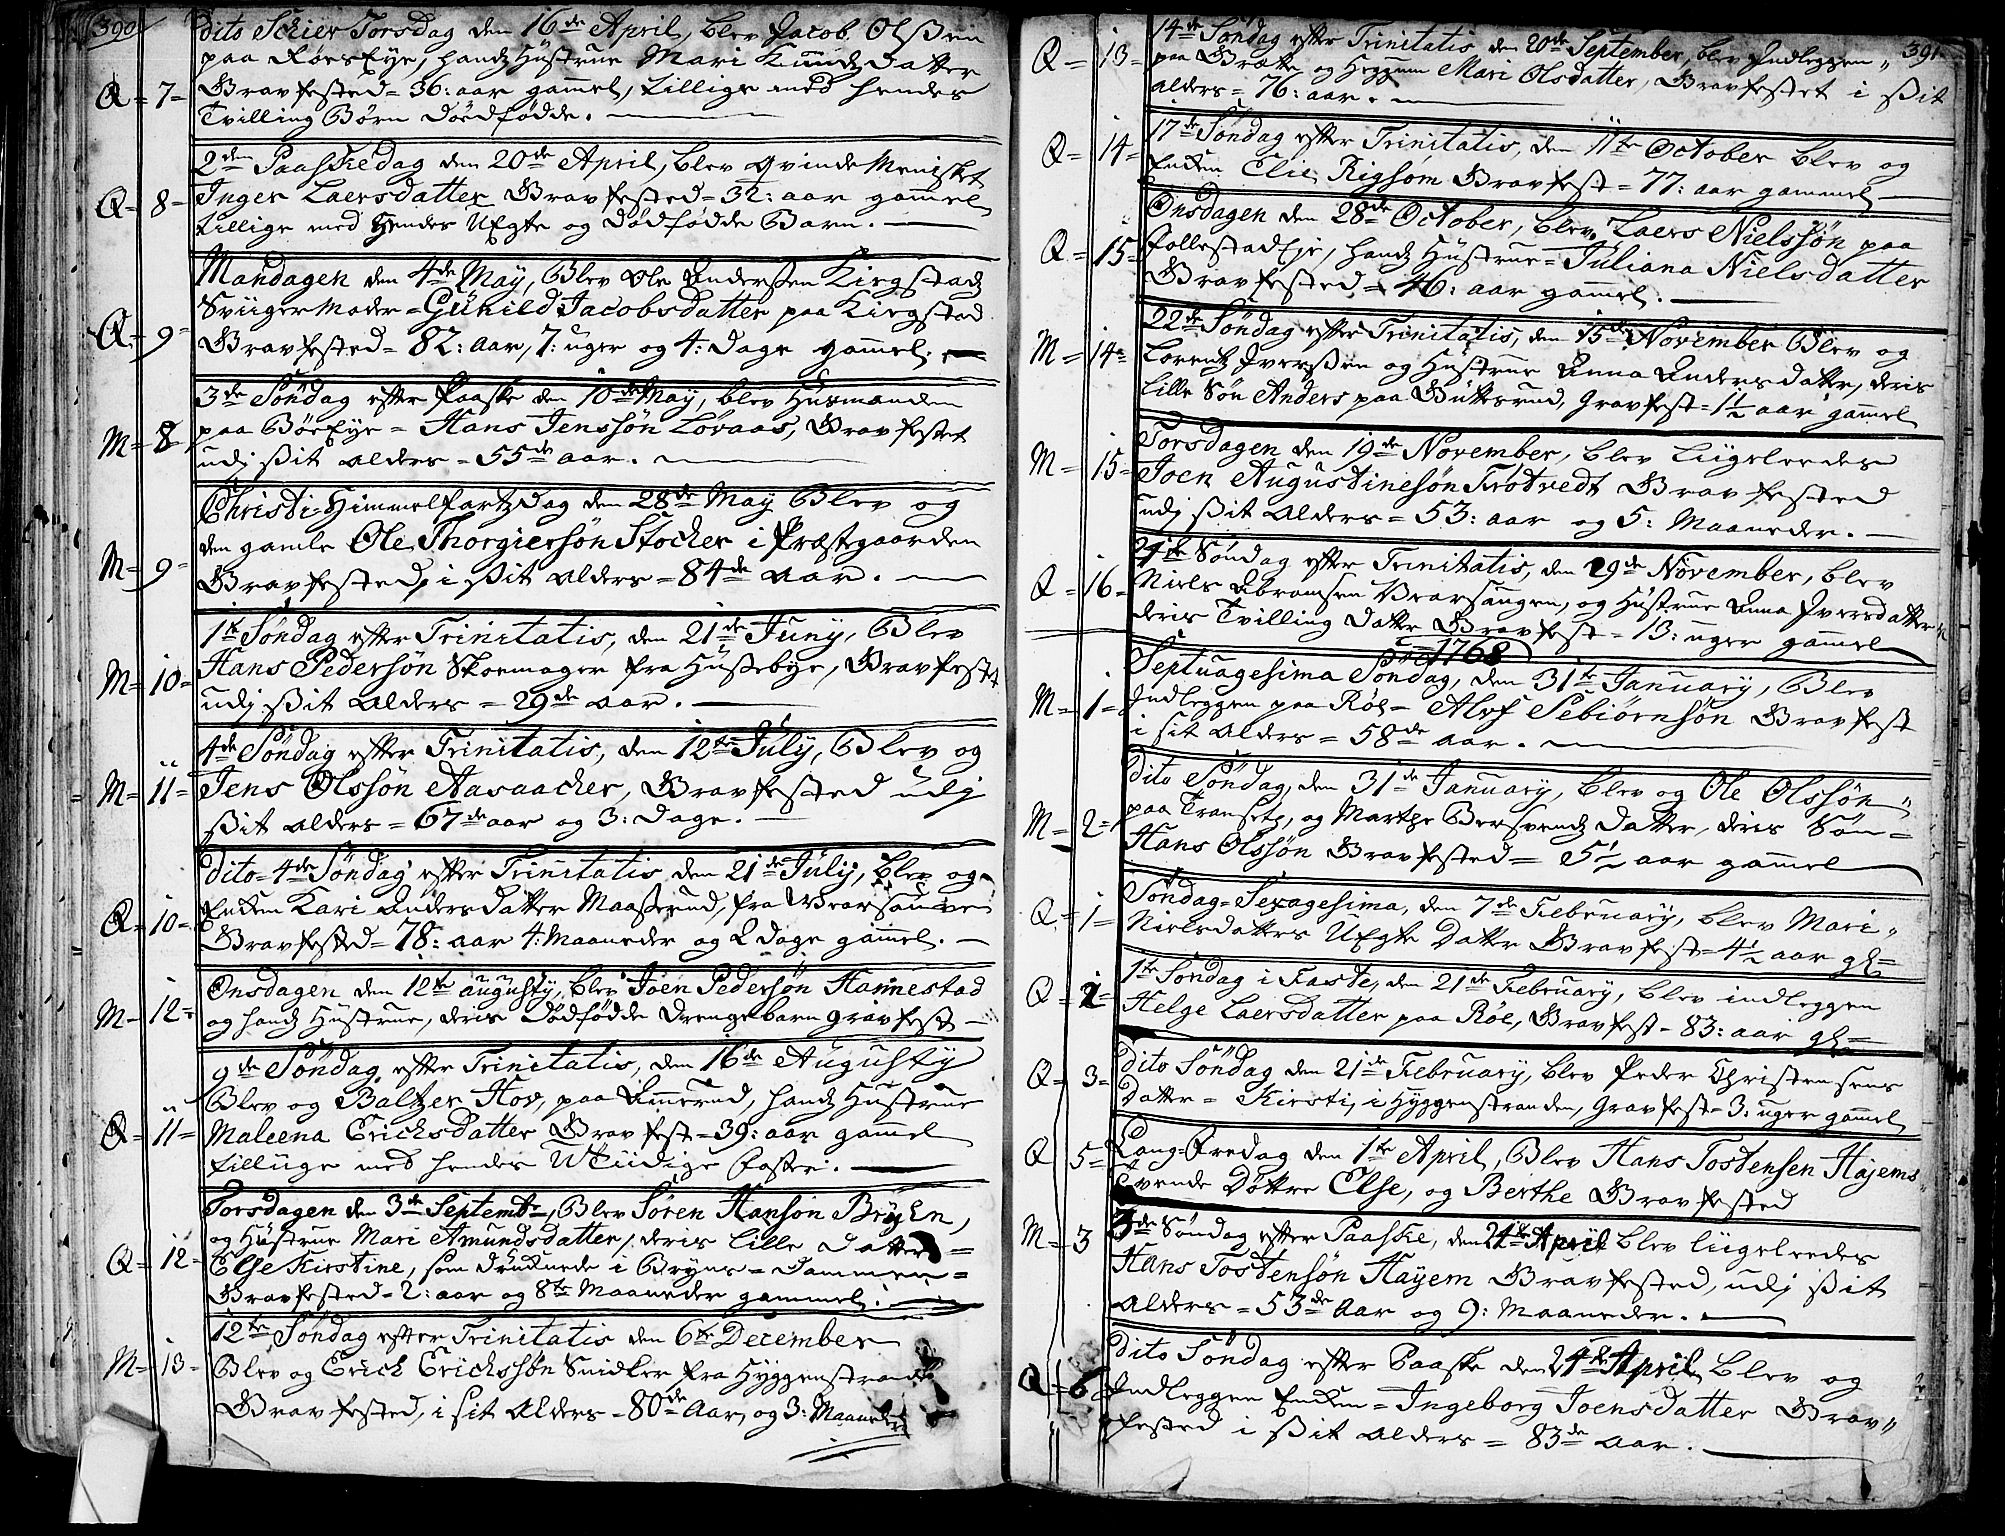 390
dito Schier Torsdag den 16de April, blev Jacob Olssen
paa RøesEye, hands Hustrue Mari Knudsdatter
Q = 7 = Gravfested = 36: aar gammel, tillige med hendes
Tvilling Børn dødfødde.
2den Paaskedag den 20de April, blev Qvinde Mennisket
Q = 8 = Inger Laersdatter Gravfested = 32: aar gammel
tillige med Hendes UEgte og dødfødde Barn.
Mandagen den 4de May, Blev Ole Anderssen Kirgstads
Sviiger Moder = Gunild Jacobsdatter paa Kirgstad
Q = 9 = Gravfested = 82: aar, 7: uger og 4: dage gammel.
3de Søndag efter Paaske den 10de May, blev Huusmanden
M = 8 paa BøeEye = Hans Jenssøn Løvaas, Gravfestet
udj sit alders = 55de aar.
Christi Himmelfartz Dag den 28de May Blev og
den gamle Ole Thorgiersøn Stocker i Præstgaarden
M = 9 = Gravfested, i sit alders = 84de aar.
1te Søndag efter Trinitatis, den 21de Juny, Blev
M = 10 = Hans Pedersøn Skoemager fra Hustebye, Gravfestet
udj sit alders = 29de aar.
4de Søndag efter Trinitatis, den 12te July, Blev og
M = 11 = Jens Olssøn Aasaacher, Gravfested udj
sit alders = 67de aar og 3: dage.
dito = 4de Søndag efter Trinitatis den 21de July, blev og
Q = 10 = Enken Kari Andersdatter Maaserud, fra
Gravfested = 78: aar 4: Maaneder og 2 dage gammel.
Onsdagen den 12te augusty, blev Joen Pedersøn Hannestad
M = 12 = og hands Hustrue, deris dødfødde drengebarn gravfest
9de Søndag efter Trinitatis, den 16de Augusty
Blev og Baltzer Hov, paa Amerud, hands Hustrue
Q = 11 = Maleena Erichsdatter Gravfest = 39: aar gammel
tilliige med hendes Utiidige foster.
Torsdagen den 3de Septembr, Blev Søren Hansøn Bryen,
og Hustrue Mari Amundsdatter, deris lille datter =
Q = 12 = Else Kirstine, som druknede i Bryns = dammen =
Gravfested = 2: aar og 8te Maaneder gammel.
12te Søndag efter Trinitatis den 6te December
M = 13 = Blev og Erich Erichssøn Snidker fra Hyggenstrand
Gravfested, i sit alders = 80de Aar, og 3: Maaneder
391
14de Søndag efter Trinitatis, den 20de September, blev Indleggen
Q = 13 = paa og Mari Olsdatter, Gravfestet i sit
alders = 76: aar.
17de Søndag efter Trinitatis, den 11te October blev og
Q = 14 = Enken Elie Rigsom Gravfest = 77: aar gammel
Onsdagen den 28de October, blev Laers Nielssøn paa
Q = 15 = FollestadEje, hands Hustrue = Juliana Nielsdatter
Gravfested = 46: aar gammel.
22de Søndag efter Trinitatis, den 15de November Blev og
M = 14 = Lorents Iverssen og Hustrue Anna Andersdatter, deris
lille Søn Anders paa Buttesrud, Gravfest = 1½ aar gammel
Torsdagen den 19de November, blev liigeleedes
M = 15 = Joen Augustinesøn Trøtvedt Gravfested
udj sit Alders = 53: aar og 5: Maaneder.
24de Søndag efter Trinitatis, den 29de November, blev
Q = 16 = Niels Abramsen og Hustrue Anna Iversdatter
deris Tvilling datter Gravfest = 13: uger gammel
1768
Septuagesima Søndag, den 31te January, Blev
M = 1 = Indleggen paa Røe = Alvf Sebiørnsøn Gravfest
i sit alders = 58de aar.
dito Søndag, den 31te January, blev og Ole Olssøn
M = 2 = paa og Marthe datter, deris Søn =
Hans Olssøn Gravfested = 5½ aar gammel
Søndag = Sexagesima, den 7de February, blev Mari
Q = 1 = Nielsdatters UEgte datter Gravfest = 4½ aar gl
1te Søndag i Faste, den 21de February, blev indleggen
Q = 2 = Helge Laersdatter paa Røe, Gravfest = 83: aar gl
dito Søndag den 21de February, blev Peder Christensens
Q = 3 = datter = Kirsti, i Hyggenstranden, Gravfest = 3: uger gammel
Lang = Fredag den 1te April, Blev Hans Tostensen Hajems
Q 5 = Tvende Døttre Else, og Berthe Gravfested
3de Søndag efter Paaske, den 24de April blev liigeleedes
M = 3 Hans Tostensøn Hayem Gravfested, udj sit
alders = 53de Aar og 9: Maaneder.
dito Søndag efter Paaske den 24de April blev og
Q = 6 Indleggen Enken = Ingeborg Joensdatter Grav
fested i sit alders = 83de aar.